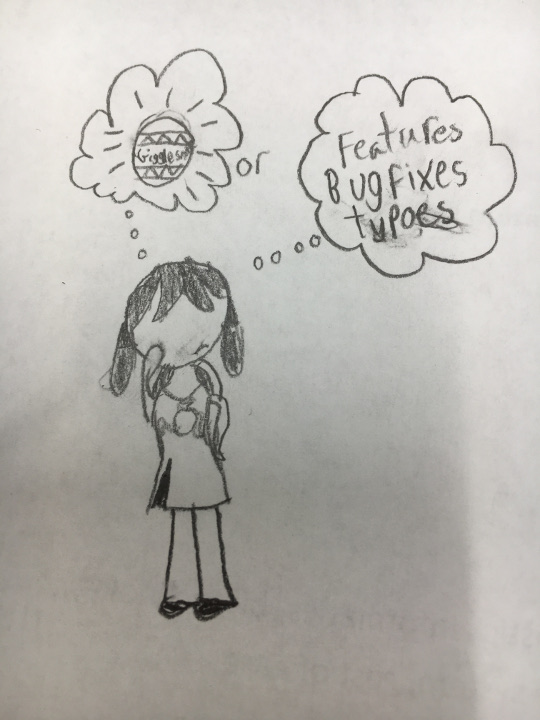 Gigglesn
or
Features
Bugfixes
typoes